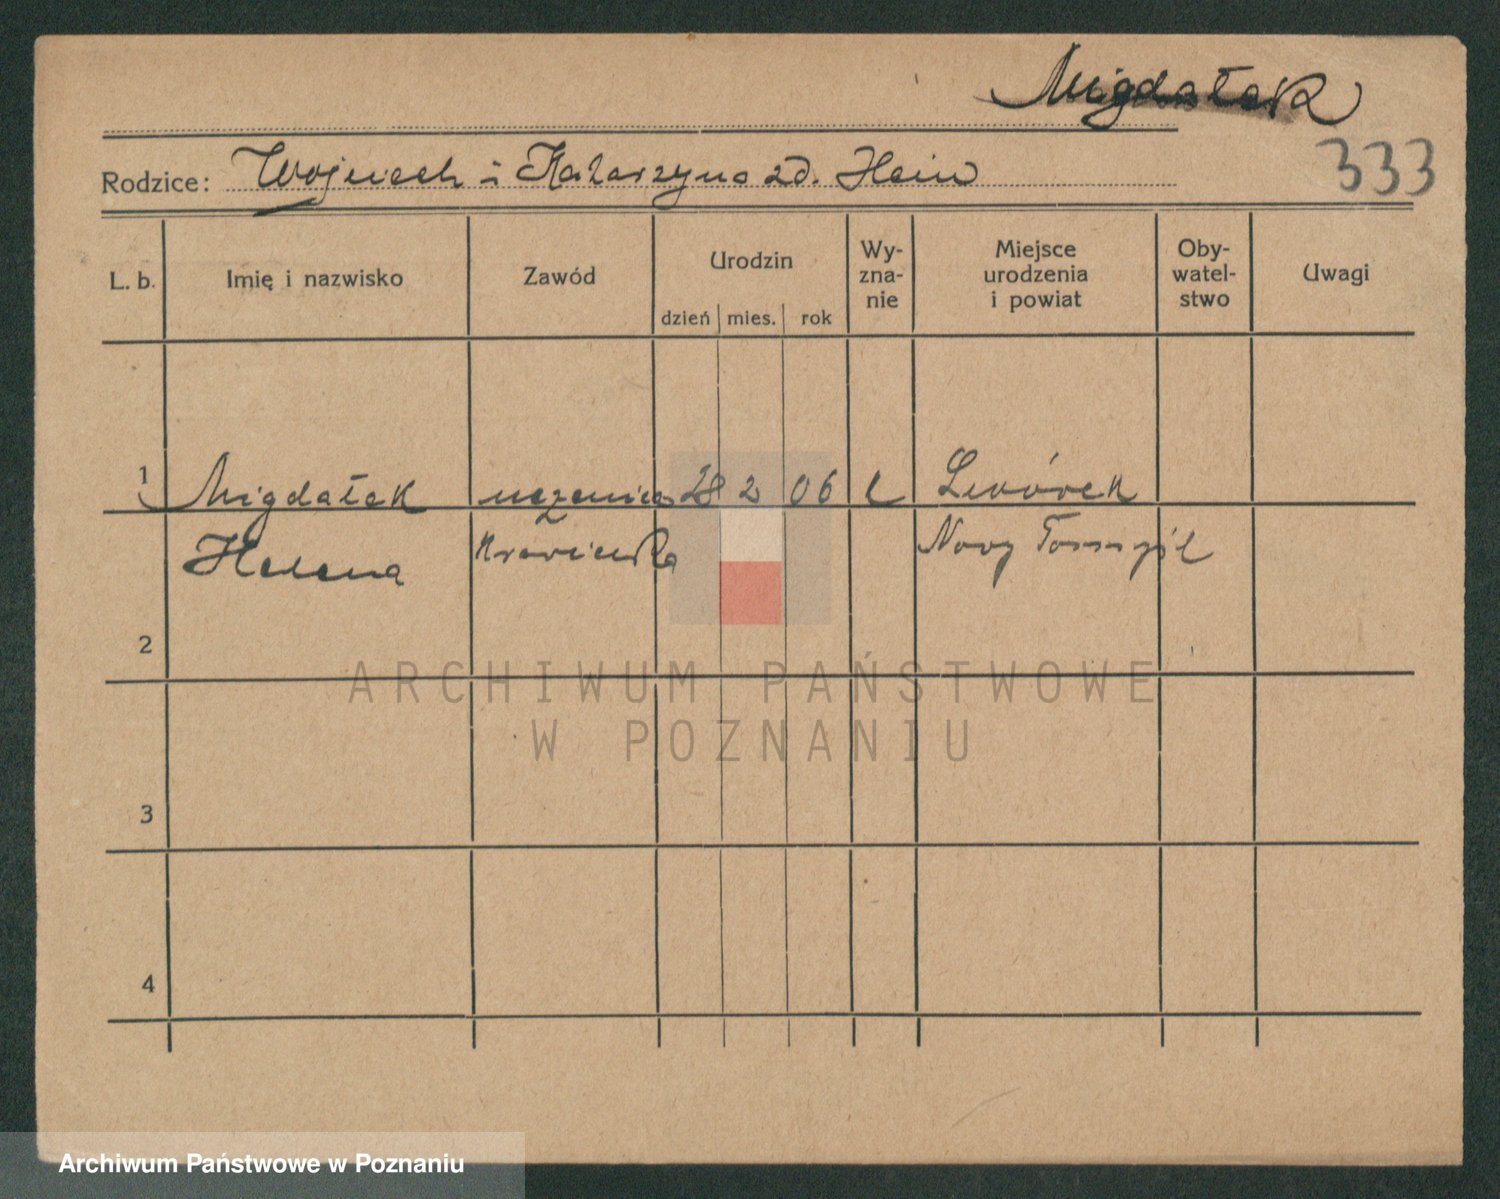 Migdałek
Rodzice: Wojciech i Katarzyna zd. Hein
333
L. b.
Imię i nazwisko
Zawód
Urodzin
dzień mies. rok
Wy-
zna-
nie
Miejsce
urodzenia
i powiat
Oby-
watel-
stwo
Uwagi
1 Migdałek uczenica 28 2 06 k Lwówek
Helena krawiecka Nowy Tomyśl
2
3
4
ARCHIWUM PAŃSTWOWE
W POZNANIU
Archiwum Państwowe w Poznaniu